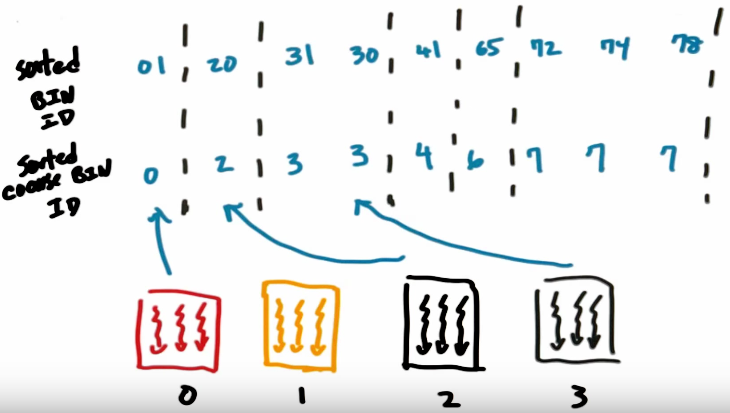 sorted BIN ID 01 20 31 30 41 65 72 74 78
sorted coarse BIN ID 0 2 3 3 4 6 7 7 7
0 1 2 3